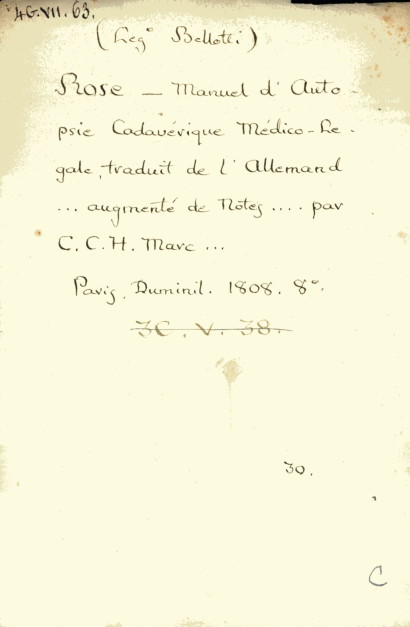 4G.VII.63.
(Leg° Bellotti)
Rose — Manuel d'Auto-
psie Cadavérique Médico-Le-
gale, traduit de l'Allemand
... augmenté de Notes .... par
C. C. H. Marc ...
Paris, Duminil. 1808. 8°.
3C. V. 38.
30.
C